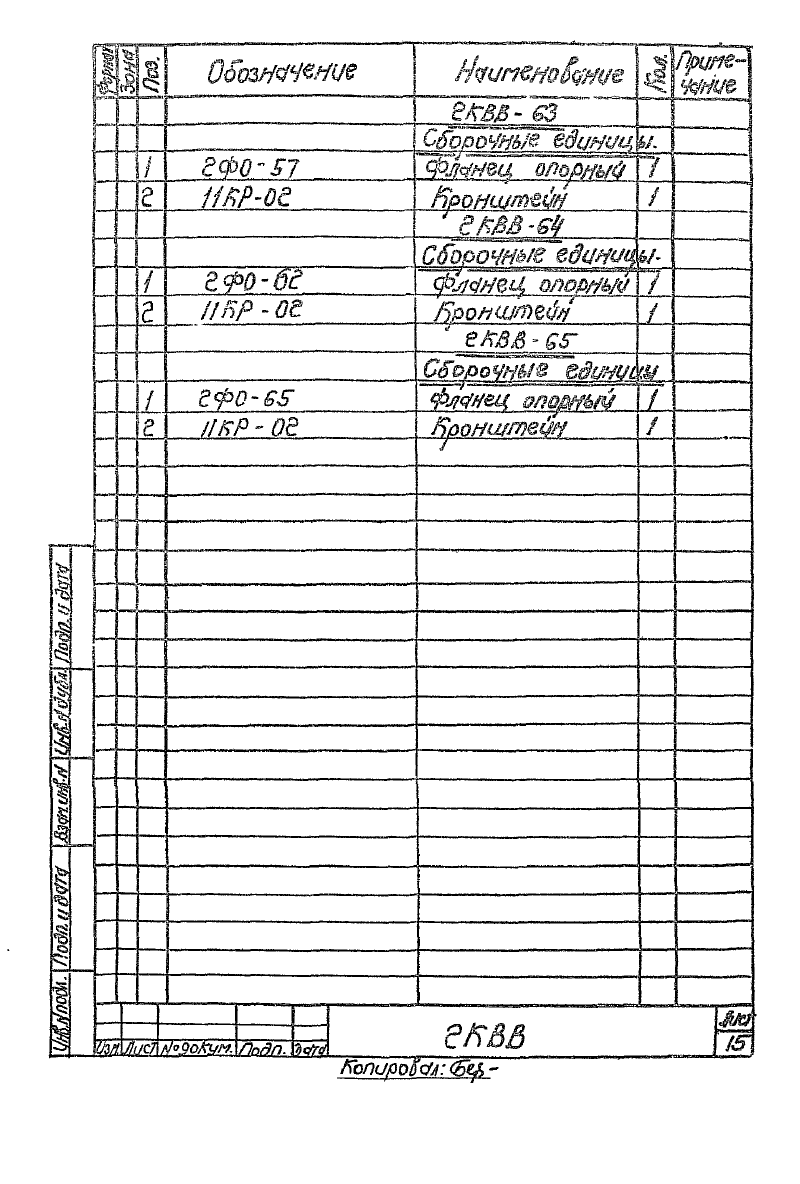 Формат Зона Поз. Обозначение Наименование Кол. Приме-
чание
2КВВ-63
Сборочные единицы.
1 2ФО-57 Фланец опорный 1
2 11КР-02 Кронштейн 1
2КВВ-64
Сборочные единицы.
1 2ФО-62 Фланец опорный 1
2 11КР-02 Кронштейн 1
2КВВ-65
Сборочные единицы
1 2ФО-65 Фланец опорный 1
2 11КР-02 Кронштейн 1
Подп. и дата
Инв.N дубл.
Взам инв.N
Подп. и дата
Инв.N подл.
Изм Лист № докум. Подп. Дата
2КВВ
Лист
15
Копировал: